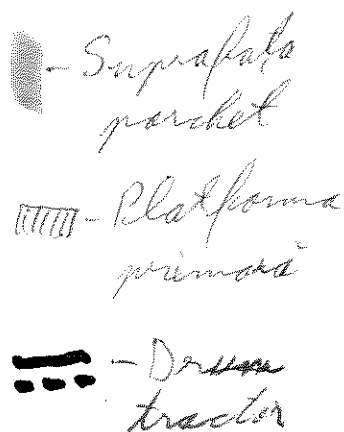 - Suprafata
parchet
- Platforma
primară
- Drum
tractor